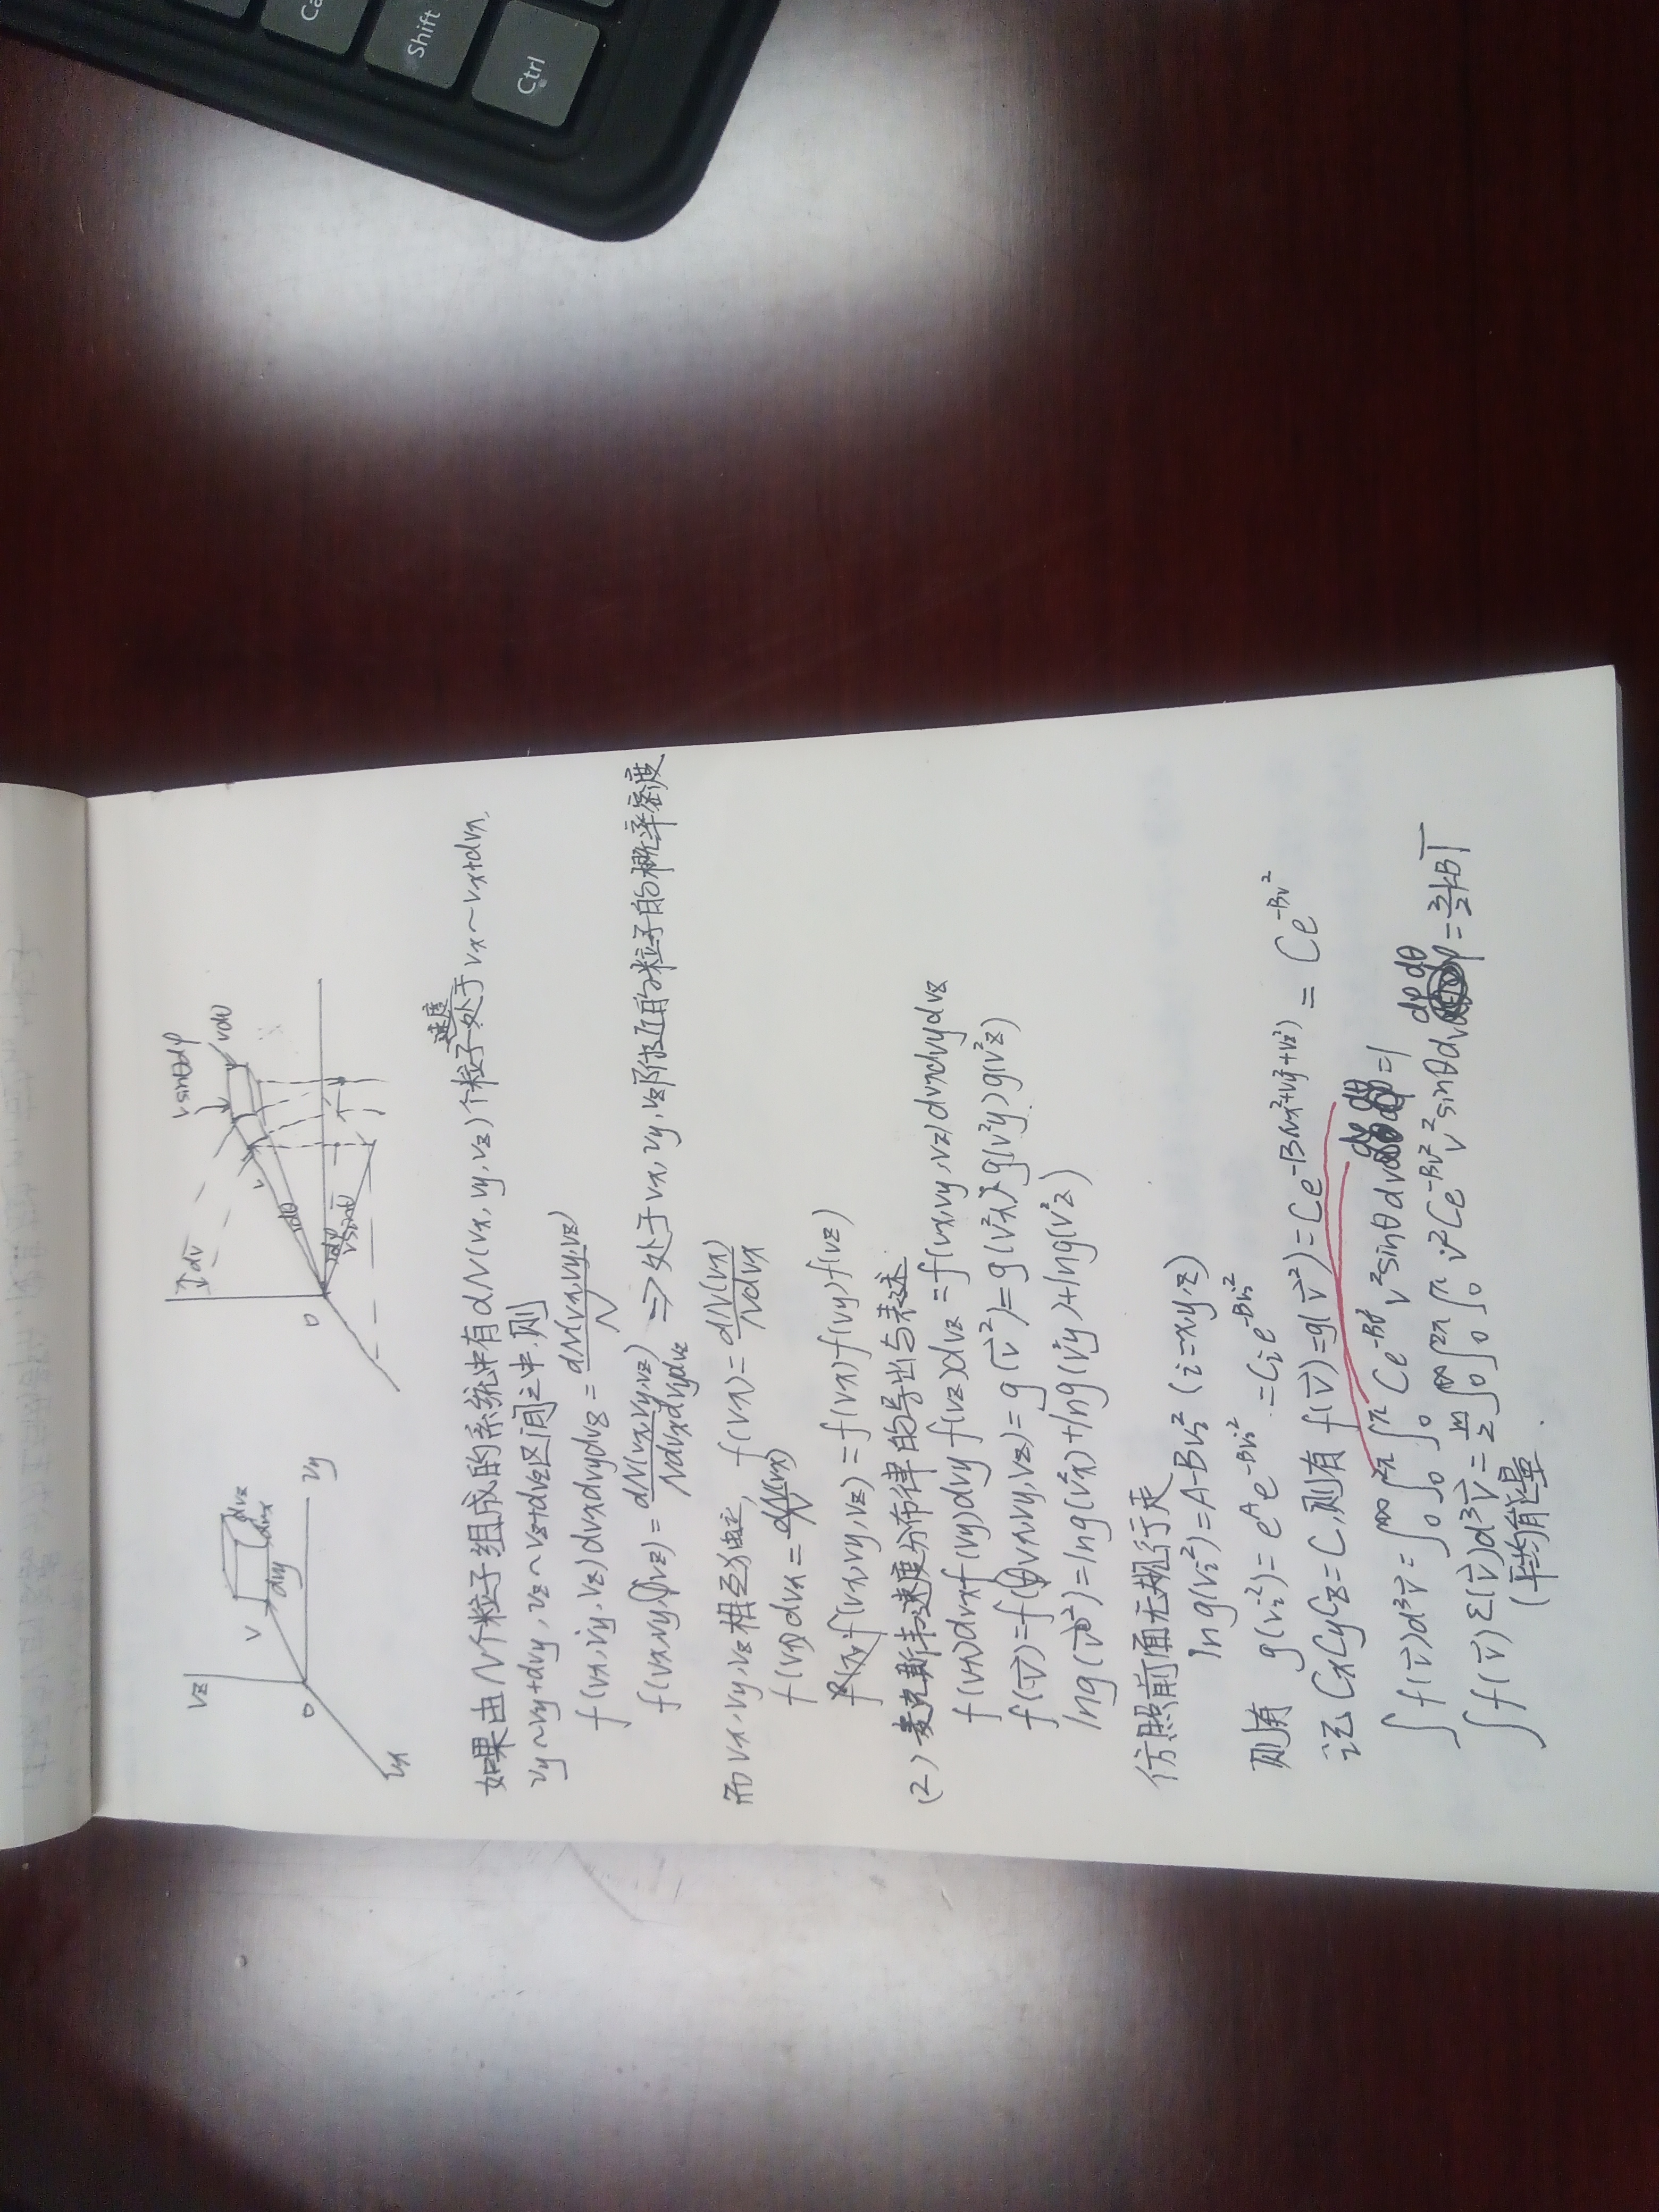 Ca
Shift
Ctrl
vz
v
dvz
dvx
dvy
O
vy
vx
dv
vsinθdφ
vdθ
v
dθ
dφ
vsinθ
O
速度
如果由N个粒子组成的系统中有dN(vx,vy,vz)个粒子处于vx~vx+dvx,
vy~vy+dvy,vz~vz+dvz区间之中,则
f(vx,vy,vz)dvxdvydvz=dN(vx,vy,vz)/N
f(vx,vy,vz)=dN(vx,vy,vz)/Ndvxdvydvz ⇒处于vx,vy,vz附近的粒子的概率密度
而vx,vy,vz相互独立, f(vx)=dN(vx)/Ndvx
f(vx)dvx=dN(vx)/N
f(vx,vy,vz)=f(vx)f(vy)f(vz)
(2)麦克斯韦速度分布律的导出与表述
f(vx)dvxf(vy)dvyf(vz)dvz=f(vx,vy,vz)dvxdvydvz
f(v⃗)=f(vx,vy,vz)=g(v⃗²)=g(v²x)g(v²y)g(v²z)
lng(v⃗²)=lng(v²x)+lng(v²y)+lng(v²z)
仿照前面无规行走
lng(vi²)=A-Bvi² (i=x,y,z)
则有 g(vi²)=e^A e^-Bvi²=Cie^-Bvi²
记CxCyCz=C,则有f(v⃗)=g(v⃗²)=Ce^-B(vx²+vy²+vz²)=Ce^-Bv²
∫f(v⃗)d³v⃗=∫₀^∞∫₀^2π∫₀^π Ce^-Bv² v²sinθdvdφdθ=1
∫f(v⃗)Σ(v⃗)d³v⃗=m/2∫₀^∞∫₀^2π∫₀^π v²Ce^-Bv² v²sinθdvdφdθ=3/2kBT
(平均能量